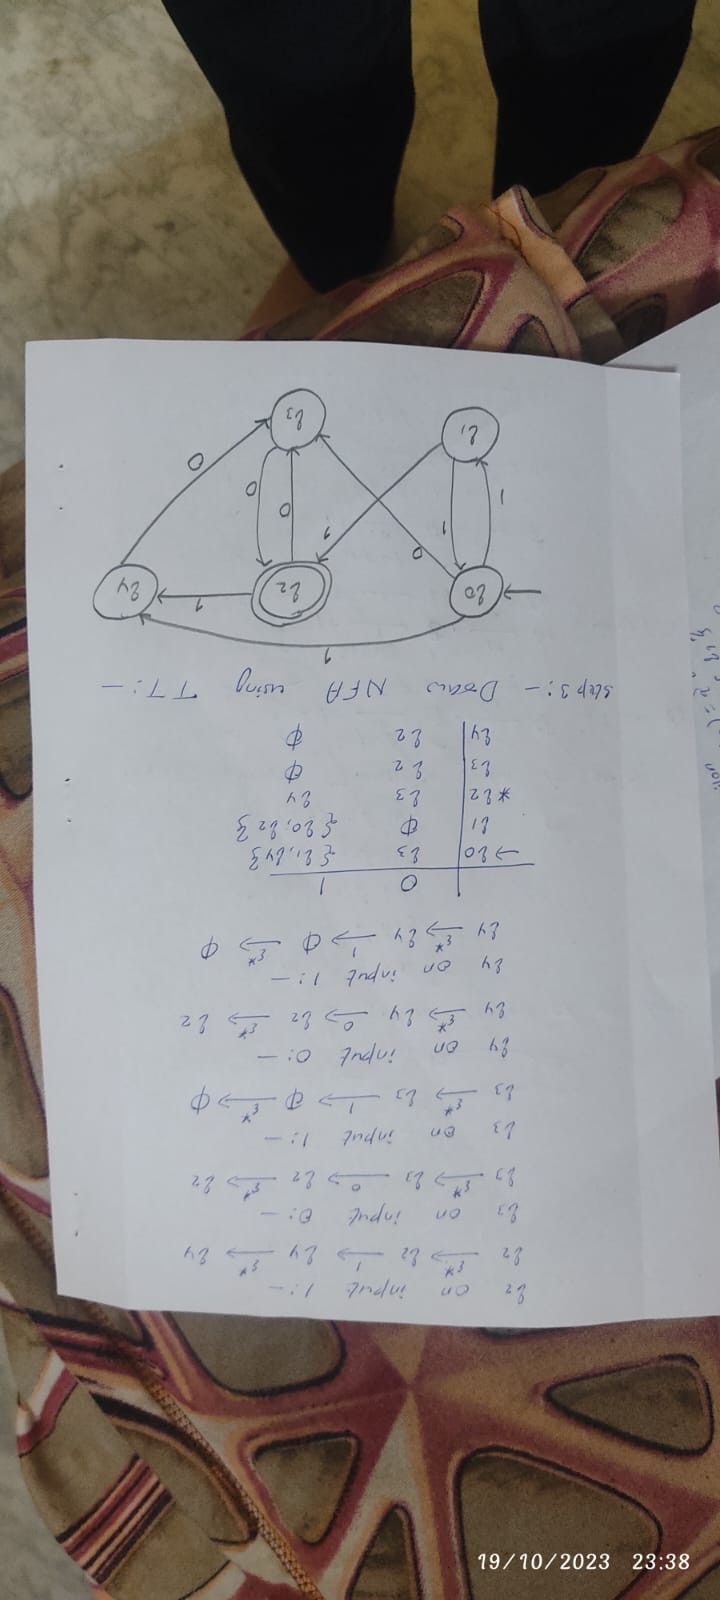 19/10/2023 23:38
q2 on input 1:-
q2 —ε*→ q2 —1→ q4 —ε*→ q4
q3 on input 0:-
q3 —ε*→ q3 —0→ q2 —ε*→ q2
q3 on input 1:-
q3 —ε*→ q3 —1→ ϕ —ε*→ ϕ
q4 on input 0:-
q4 —ε*→ q4 —0→ q2 —ε*→ q2
q4 on input 1:-
q4 —ε*→ q4 —1→ ϕ —ε*→ ϕ
0 1
→q0 q3 {q1,q4}
q1 ϕ {q0,q2}
*q2 q3 q4
q3 q2 ϕ
q4 q2 ϕ
Step3:- Draw NFA using TT:-
1
q0 q2 1 q4
0 1
1 1 0 0 0
q1 q3